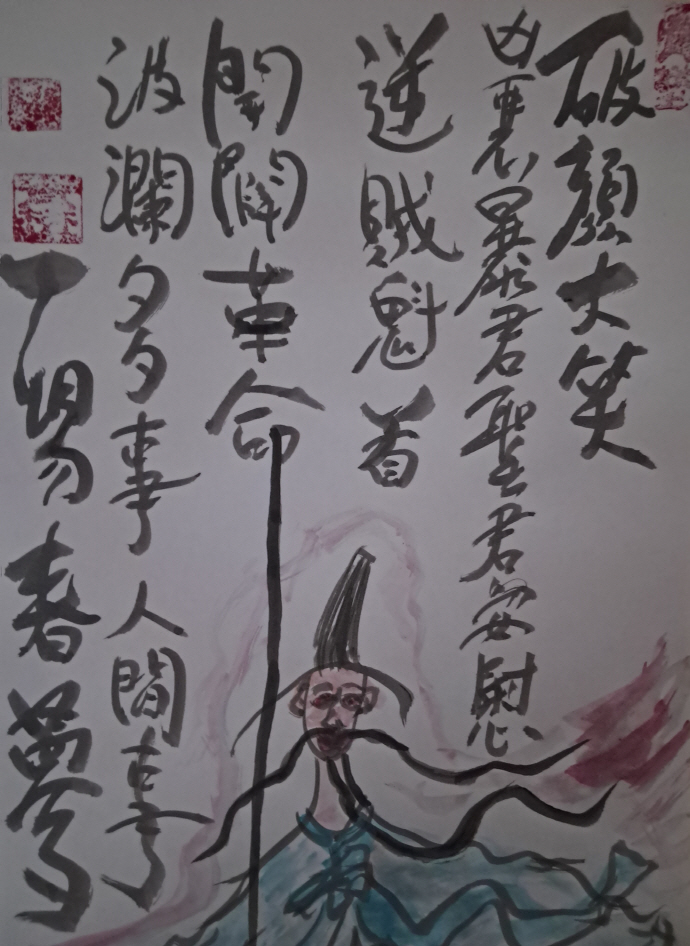 破顏大笑
凶暴君聖君安慰
逆賊魁首
開闢革命
波瀾多事人間事
一場春夢